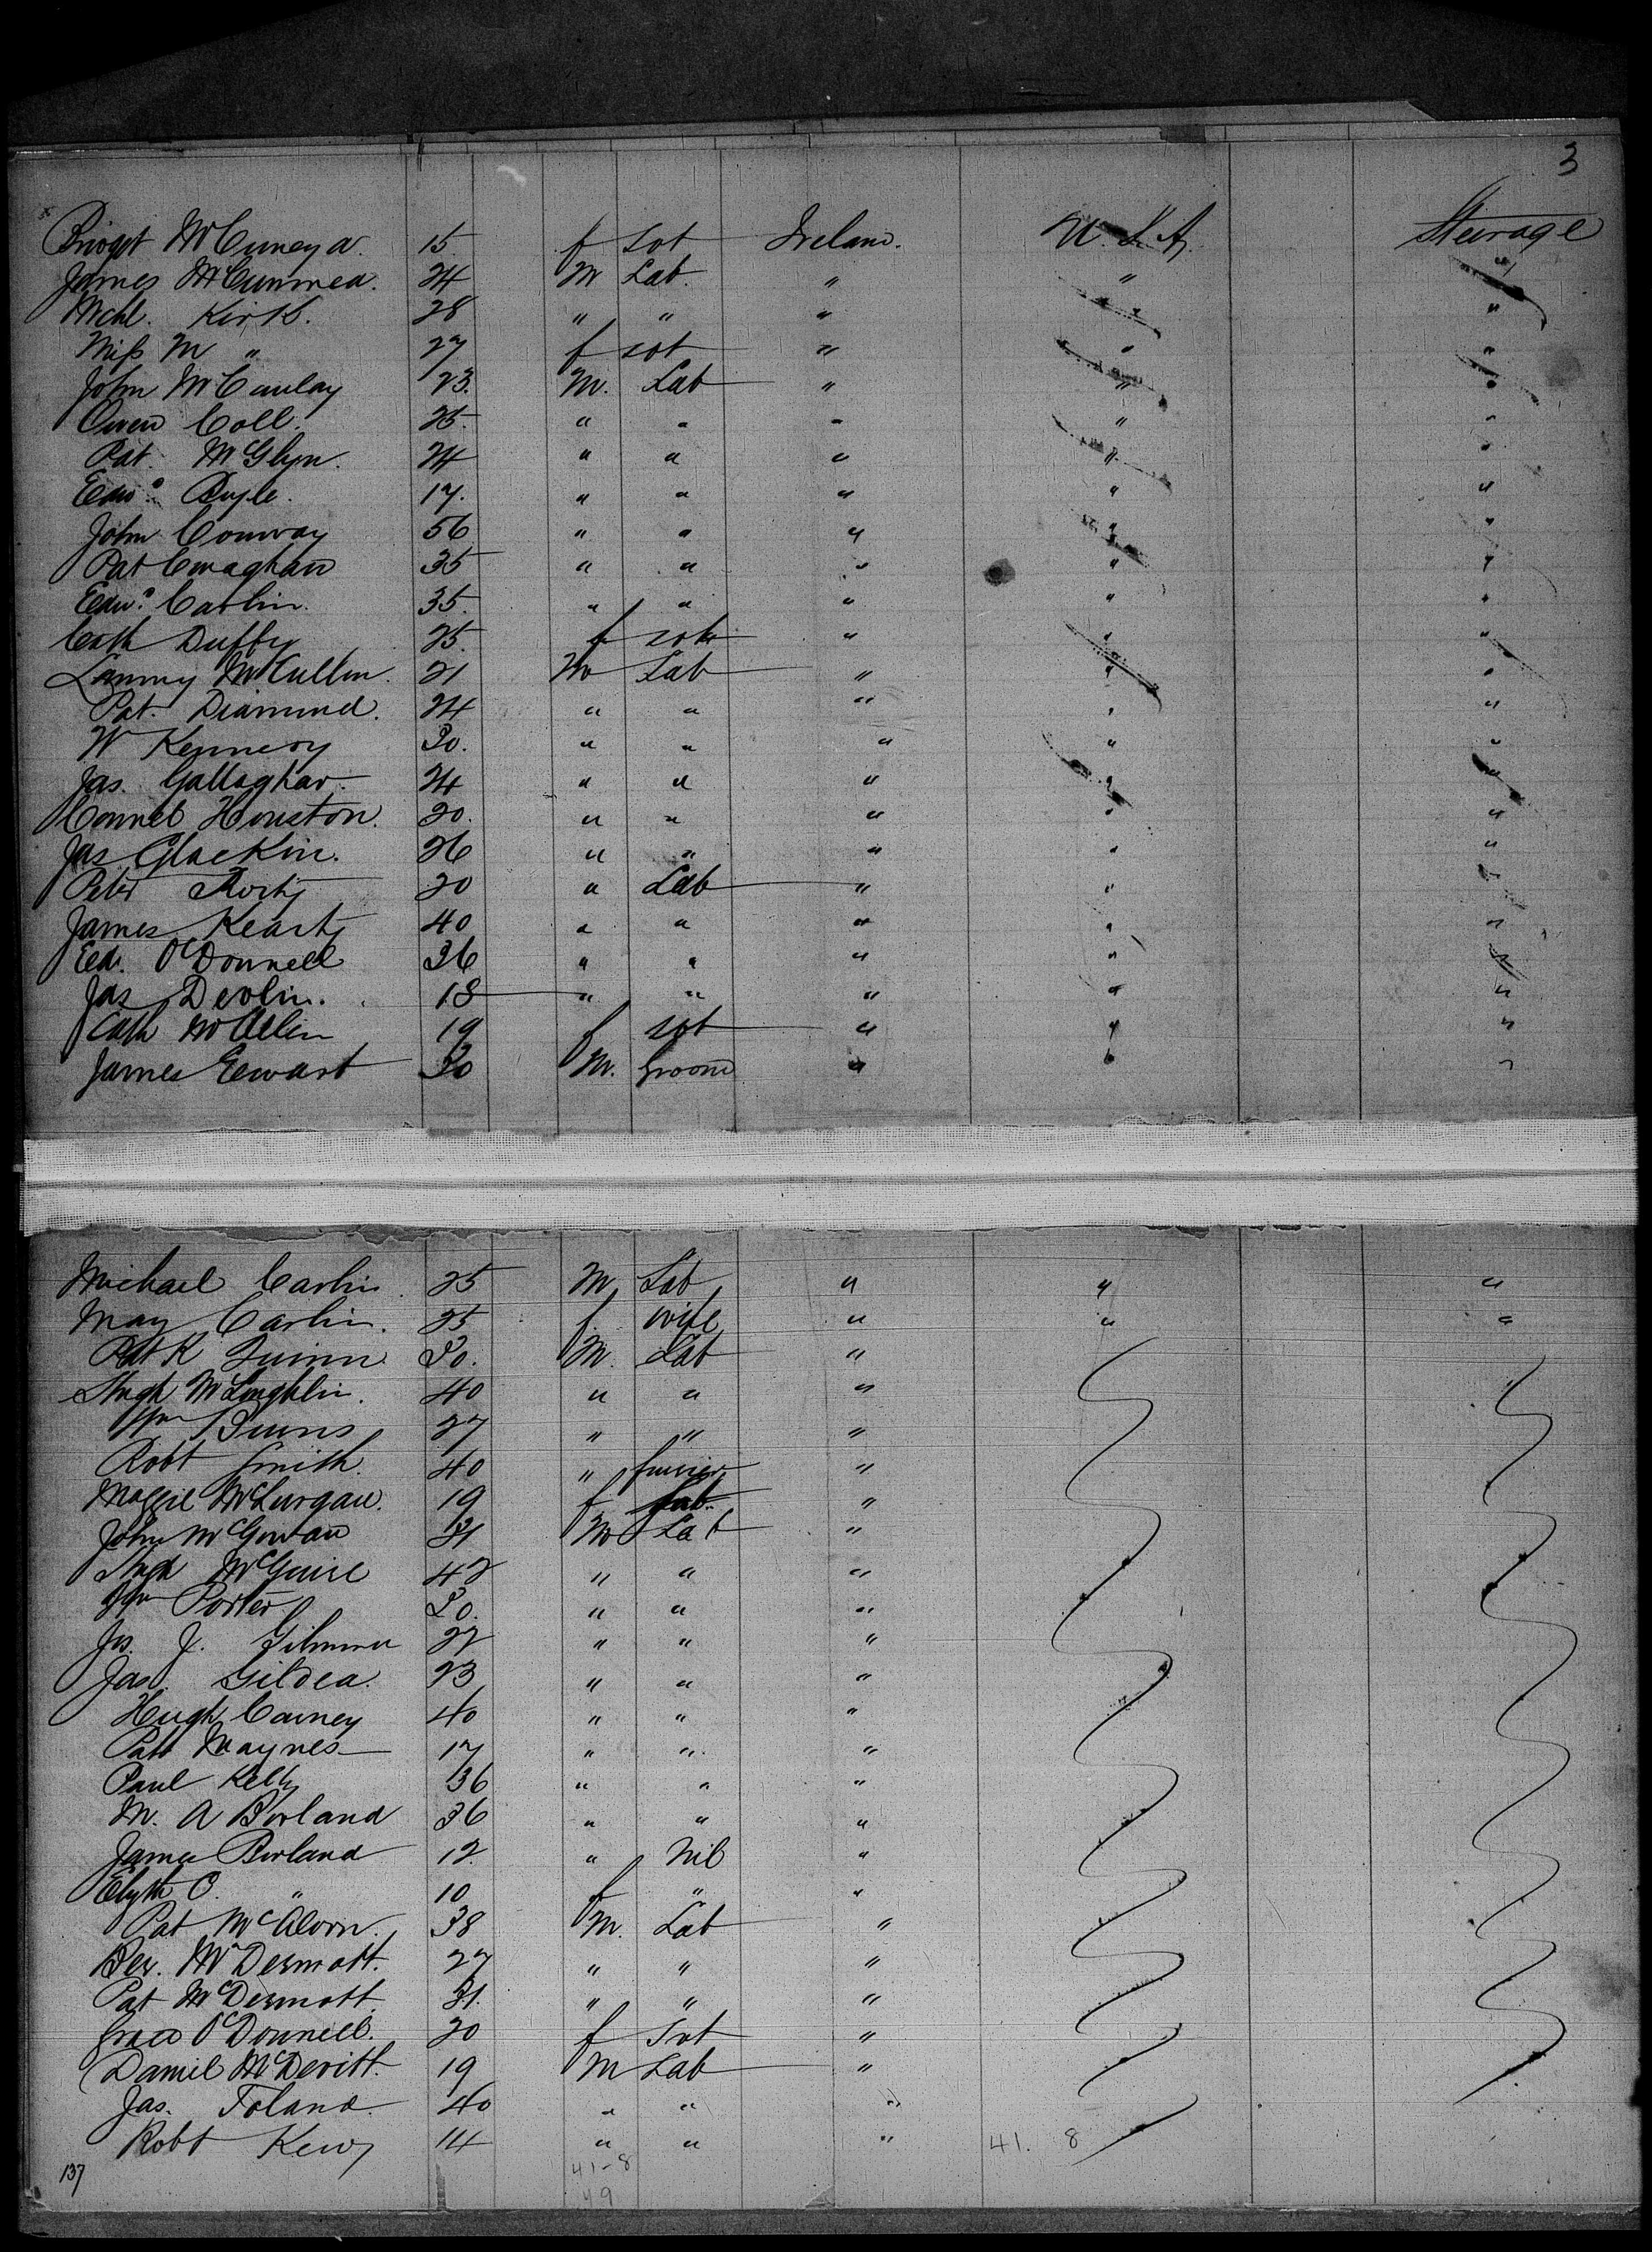 3
Bridget McCuney d. 15 f Svt Ireland. U.S.A. Steerage
James McCunnea. 24 M Lab. " " "
Mchl. Kirk. 28 " " " " "
Miss M " 27 f svt " " "
John McCaulay 23. M. Lab " " "
Owen Coll. 25. " " " " "
Pat. McGlyn. 24 " " " " "
Edwd Boyle. 17. " " " " "
John Conway 56 " " " " "
Pat Conaghan 35 " " " " "
Edwd Carlin. 35. " " " " "
Cath Duffy 25. f svt " " "
Lanny McCullen. 21 M Lab " " "
Pat. Diamond. 24 " " " " "
W Kennedy 30. " " " " "
Jas. Gallaghar. 24 " " " " "
Connel Houston. 20. " " " " "
Jas Glackin. 26 " " " " "
Peter 20 " Lab " " "
James Kearty 40 " " " " "
Ed. O'Donnell 36 " " " " "
Jas Devlin. 18 " " " " "
Cath McAllen 19 f svt " " "
James Eewart 30 M. Groom " " "
Michael Carlin. 25 M Lab " " "
May Carlin. 25 f. Wife " " "
Patk Quinn 30. M. Lab "
Hugh McLoughlin. 40 " " " "
Wm Burns 27 " " "
Robt Smith. 40 " "
Maggie McLurgan. 19 f "
John McGowan 31 M Lab "
Hugh McGuire 42 " " "
Wm Porter 30. " " "
Js. J. Gilmour 22 " " "
Jas. Gildea. 23 " " "
Hugh Carney 40 " " "
Patt Maynes 17 " " "
Paul Kelly 36 " " "
M. A Borland 36 " " "
James Borland 12. " Nil "
Elizth C. " 10 f " "
Pat McAloon. 38 M. Lab "
Ber. McDermott. 27 " " "
Pat McDermott 31. " " "
Grace O'Donnell. 20 f Svt "
Daniel McDevitt. 19 M Lab "
Jas. Toland. 40 " " "
Robt 14 " " " 41. 8
137 41-8
49